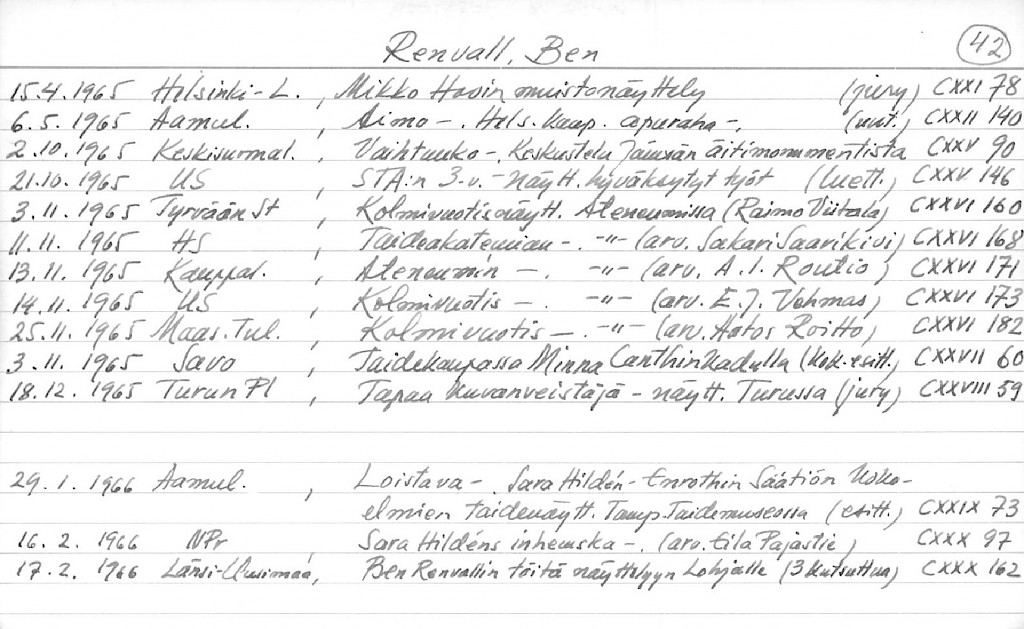 Renvall, Ben 42
15.4.1965 Helsinki-L. , Mikko Hovin muistonäyttely (jury) CXXI 78
6.5.1965 Aamul. , Aimo -. Hels. kaup. apuraha -, (uut.) CXXII 140
2.10.1965 Keskisuomal. , Vaihtuuko -, Keskustelu Jämsän äitimonumentista CXXV 90
21.10.1965 US , STA:n 3-v. - näytt. hyväksytyt työt (luett.) CXXV 146
3.11.1965 Tyrvään St , Kolmivuotisnäytt. Ateneumissa (Raimo Viitala) CXXVI 160
11.11.1965 HS , Taideakatemian -. -"- (arv. Sakari Saarikivi) CXXVI 168
13.11.1965 Kauppal. , Ateneumin -. -"- (arv. A.I. Routio) CXXVI 171
14.11.1965 US , Kolmivuotis -. -"- (arv. E.J. Vehmas) CXXVI 173
25.11.1965 Maas.Tul. , Kolmivuotis -. -"- (arv. Hotos Roitto) CXXVI 182
3.11.1965 Savo , Taidekaupassa Minna Canthinkadulla (kok.esitt.) CXXVII 60
18.12.1965 Turun Pl , Tapaa kuvanveistäjä - näytt. Turussa (jury) CXXVIII 59
29.1.1966 Aamul. , Loistava -. Sara Hildén-Enrothin Säätiön koko-
elmien taidenäytt. Tamp. Taidemuseossa (esitt.) CXXIX 73
16.2.1966 NPr , Sara Hildéns inhemska -. (arv. Eila Pajastie) CXXX 97
17.2.1966 Länsi-Uusimaa, Ben Renvallin töitä näyttelyyn Lohjalle (3 kutsuttua) CXXX 162